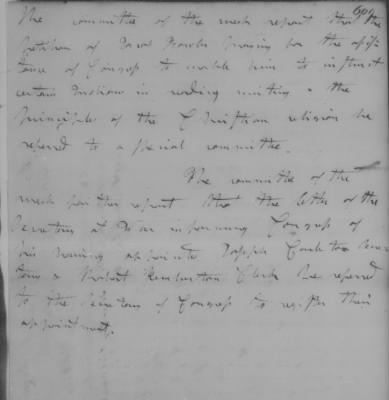 609
The committee of the week report that the
petition of Jacob Fowler praying for the assis-
tance of Congress to enable him to instruct
certain Indians in reading writing & the
Principles of the Christian religion be
referred to a special committee.
The committee of the
week further report that the letter of the
Secretary at War informing Congress of
his having appointed Joseph Carleton Secre
tary & Robert Pemberton Clerk be referred
to the Secretary of Congress to register their
appointments.